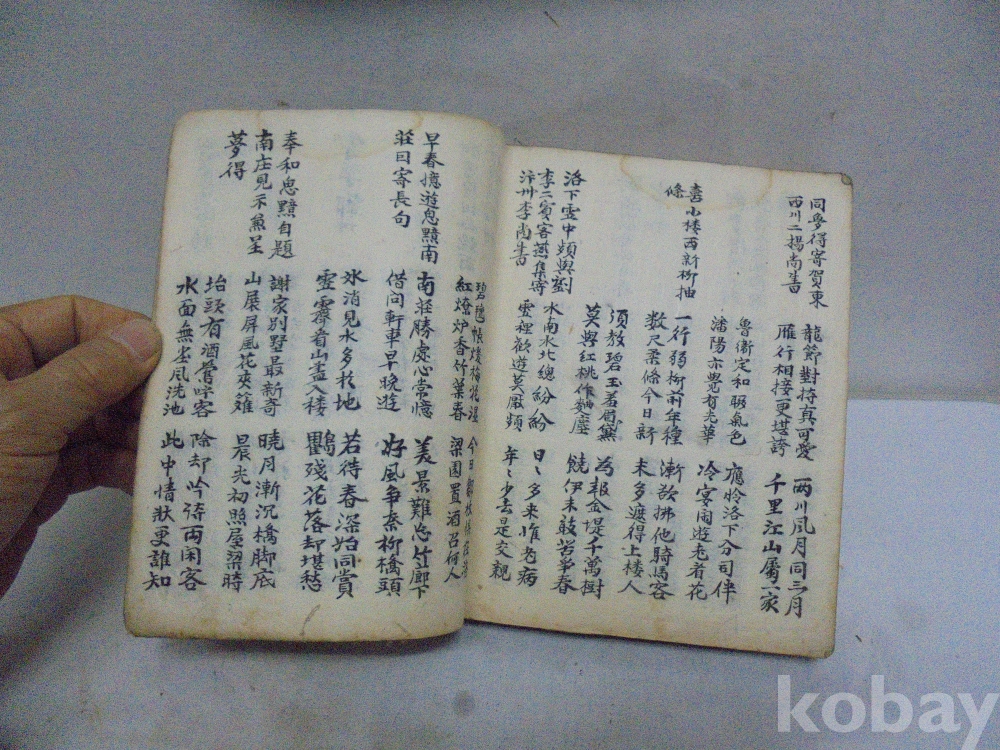 同夢得寄賀東
西川二楊尚書
龍節對持真可愛
雁行相接更堪誇
兩川風月同三月
千里江山屬一家
魯衛定和聠氣色
潘陽亦覺有光華
應怜洛下分司伴
冷宴闲遊老看花
喜小楼西新柳抽
條
一行弱柳前年種
数尺柔條今日新
漸欲拂他騎馬客
未多遮得上楼人
須教碧玉羞眉黛
莫與紅桃作麯塵
為報金堤千萬樹
饒伊未敢苦爭春
洛下雪中頻與劉
李二賓客燕集寄
汴州李尚書
水南水北總紛紛
雪裡歡遊莫厭頻
日〻多来惟老病
年〻少去是交親
碧氊帳煖梅花濕
紅燎炉香竹葉春
今日鄒枚俱在洛
梁園置酒召何人
早春憶遊思黯南
莊因寄長句
南莊勝處心常憶
借問軒車早晚遊
美景難忘竹廊下
好風爭柰柳橋頭
氷消見水多於地
雪霽看山盡入楼
若待春深始同賞
鸎殘花落却堪愁
奉和思黯自題
南庄見示兼呈
夢得
謝家別墅最新奇
山展屏風花夾籬
曉月漸沉橋脚底
晨光初照屋梁時
抬頭有酒鶯呼客
水面無塵風洗池
除却吟詩兩闲客
此中情狀更誰知